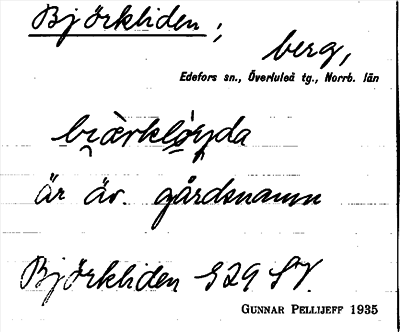 Björkliden;
berg,
Edefors sn., Överluleå tg., Norrb. län
är äv. gårdsnamn
Björkliden 929 SV.
GUNNAR PELLIJEFF 1935